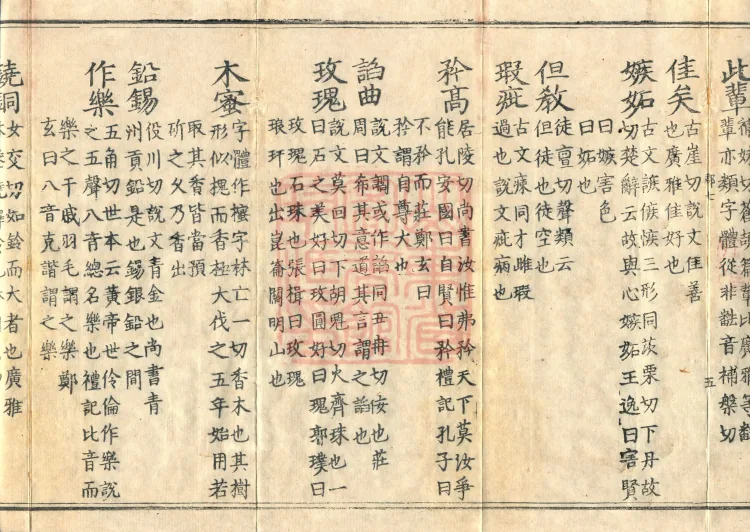 此輩
輩亦類文類字體從非 音補槃切
五
佳矣
古崖切說文佳善
也廣雅佳好也
嫉妬
古文 三形同茨栗切下丹故
切楚辭云故興心嫉妬王逸曰害賢
曰嫉害色
曰妬也
但教
徒亶切聲類云
但徒也徒空也
瑕疵
古文 同才雌瑕
過也說文疵病也
矜高
居陵切尚書汝惟弗矜天下莫汝爭
能孔安國曰自賢曰矜禮記孔子曰
不矜而莊鄭玄曰
矜謂自尊大也
諂曲
說文讇或作諂同丑冉切佞也莊
周曰希其意道其言謂之諂也
玫瑰
說文莫回切下胡魁切火齊珠也一
曰石之美好曰玫圓好曰瑰郭璞曰
玫瑰石珠也張揖曰玫瑰
琅玕也出崑崙開明山也
木蜜
字體作櫁字林亡一切香木也其樹
形似槐而香極大伐之五年始用若
取其香皆當預
斫之久乃香出
鉛錫
役川切說文青金也尚書青
州貢鉛是也錫銀鉛之間
作樂
五角切世本云黃帝世伶倫作樂說
之五聲八音總名樂也禮記比音而
樂之干戚羽毛謂之樂鄭
玄曰八音克諧謂之樂
鐃銅
女交切如鈴而大者也廣雅